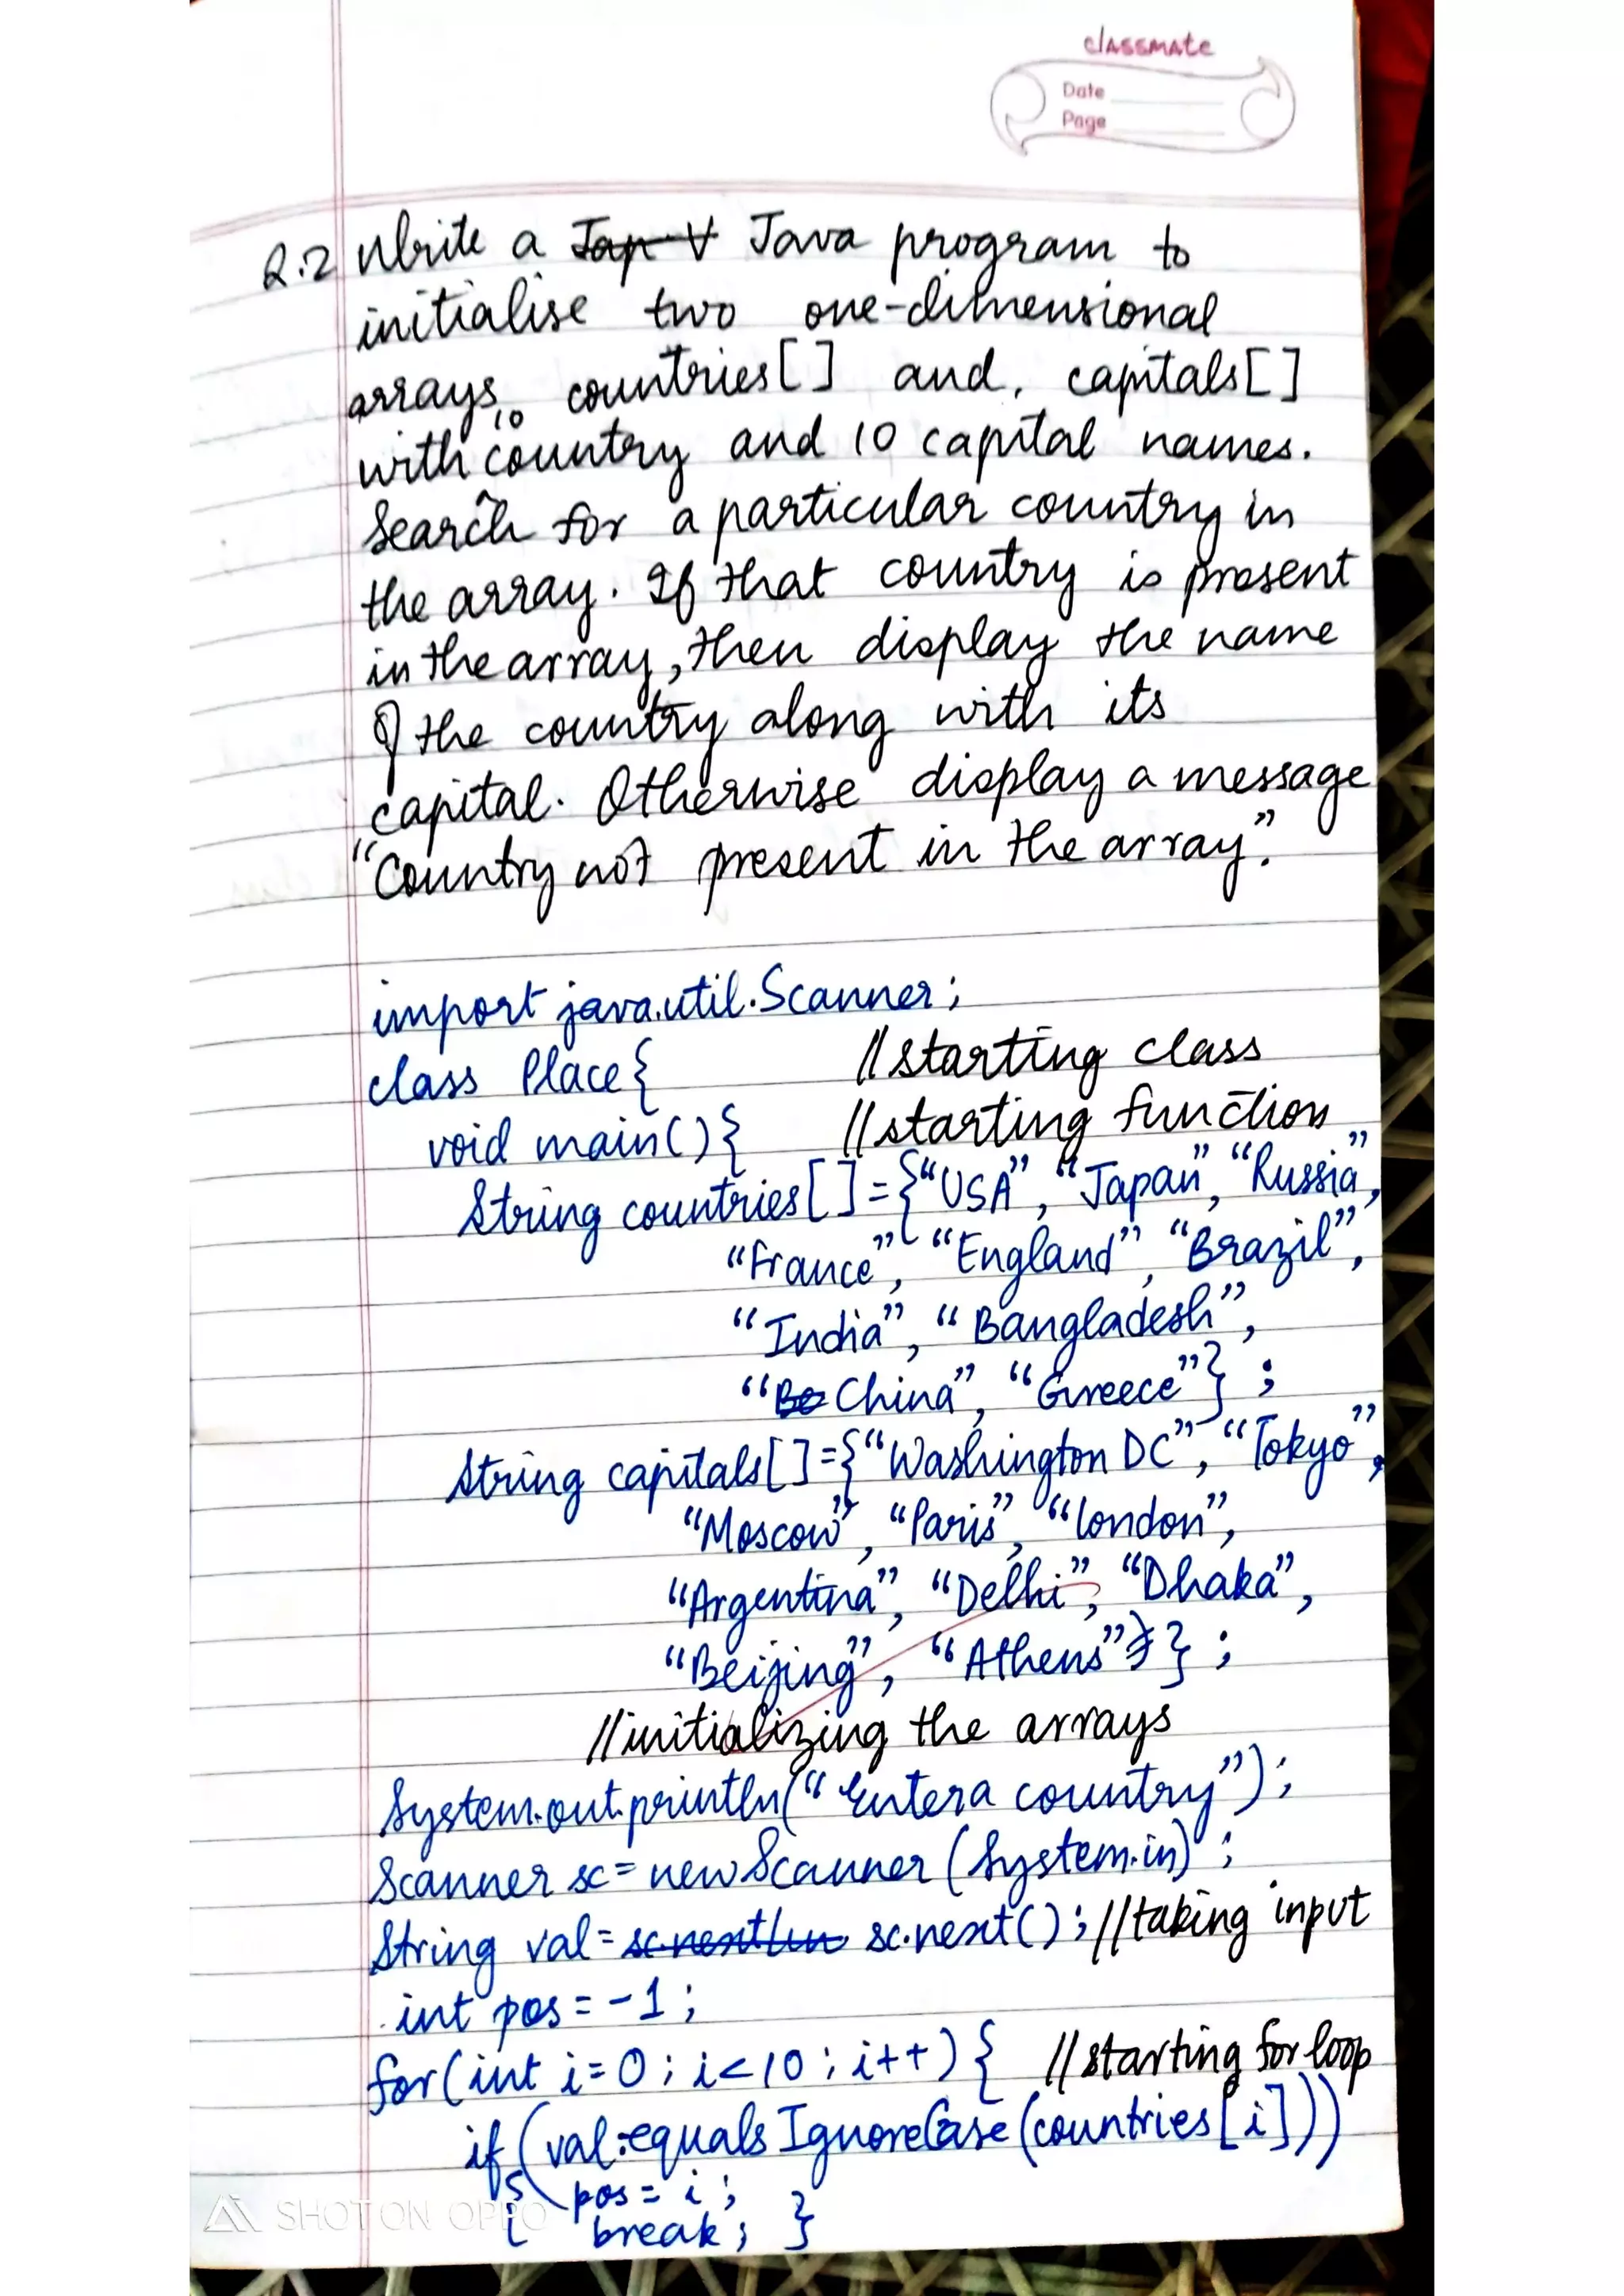 classmate
Date
Page
Q.2 Write a Jap V Java program to
initialise two one-dimensional
arrays, countries[] and, capitals[]
with 10 country and 10 capital names.
Search for a particular country in
the array. If that country is present
in the array, then display the name
of the country along with its
capital. Otherwise display a message
"Country not present in the array".
import java.util.Scanner;
class Place{ //starting class
void main(){ //starting function
String countries[]={"USA", "Japan", "Russia",
"France", "England", "Brazil",
"India", "Bangladesh",
"Be China", "Greece"};
String capitals[]={"Washington DC", "Tokyo",
"Moscow", "Paris", "London",
"Argentina", "Delhi", "Dhaka",
"Beijing", "Athens"};
//initializing the arrays
System.out.println("Enter a country");
Scanner sc=new Scanner(System.in);
String val=sc.nextLin sc.next(); //taking input
int pos=-1;
for(int i=0; i<10; i++){ //starting for loop
if(val.equalsIgnoreCase(countries[i]))
{ pos=i;
break; }
SHOT ON OPPO